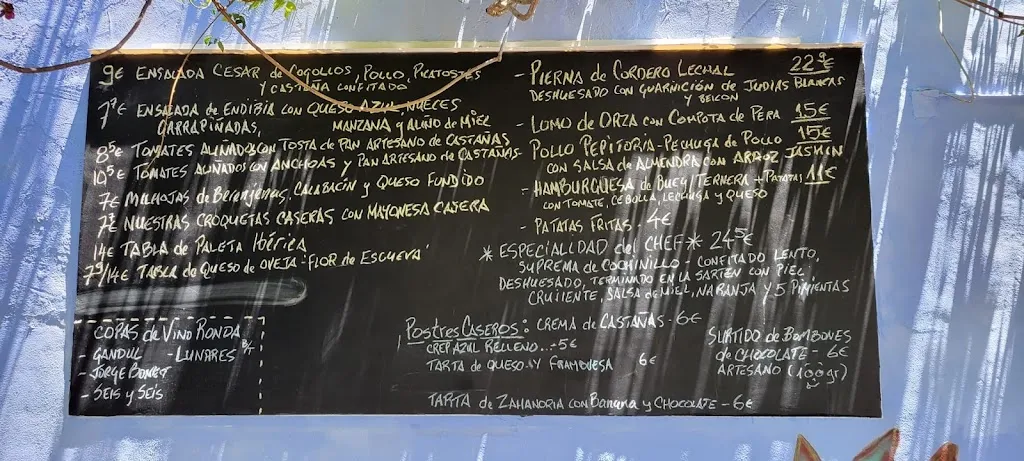 9€ ENSALADA CESAR de COGOLLOS, POLLO, PICATOSTES
Y CASTAÑA CONFITADA
7⁹€ ENSALADA de ENDIBIA CON QUESO AZUL, NUECES
GARRAPIÑADAS, MANZANA y ALIÑO de MIEL
8⁵€ TOMATES ALIÑADOS CON TOSTA de PAN ARTESANO de CASTAÑAS
10⁵€ TOMATES ALIÑADOS CON ANCHOAS Y PAN ARTESANO de CASTAÑAS
7€ MILHOJAS de Berenjenas, CALABACIN y QUESO FUNDIDO
7€ NUESTRAS CROQUETAS CASERAS CON MAYONESA CASERA
14€ TABLA de PALETA Ibérica
7⁹/14€ TABLA de QUESO de OVEJA "FLOR de ESCUEVA"
COPAS de VINO RONDA B/T
- GANDUL - LUNARES
- JORGE BONET
- SEIS y SEIS
- PIERNA de CORDERO LECHAL 22⁹€
DESHUESADO CON GUARNICIÓN de JUDIAS BLANCAS
Y BEICON
- LOMO de ORZA CON COMPOTA de PERA 15€
POLLO PEPITORIA - PECHUGA de POLLO 15€
CON SALSA de ALMENDRA CON ARROZ JASMIN
- HAMBURGUESA de BUEY/TERNERA + PATATAS 11€
CON TOMATE, CEBOLLA, LECHUGA y QUESO
- PATATAS FRITAS - 4€
* ESPECIALIDAD del CHEF * 24⁵€
SUPREMA de COCHINILLO - CONFITADO LENTO,
DESHUESADO, TERMINADO EN LA SARTÉN CON PIEL
CRUJIENTE, SALSA de MIEL, NARANJA Y 5 PIMIENTAS
Postres CASEROS: CREMA de CASTAÑAS - 6€
CREP AZUL RELLENO...-5€
TARTA de QUESO Y FRAMBUESA 6€
TARTA de ZAHANORIA CON Banana y CHOCOLATE - 6€
SURTIDO de BOMBONES
de CHOCOLATE - 6€
ARTESANO (100gr)